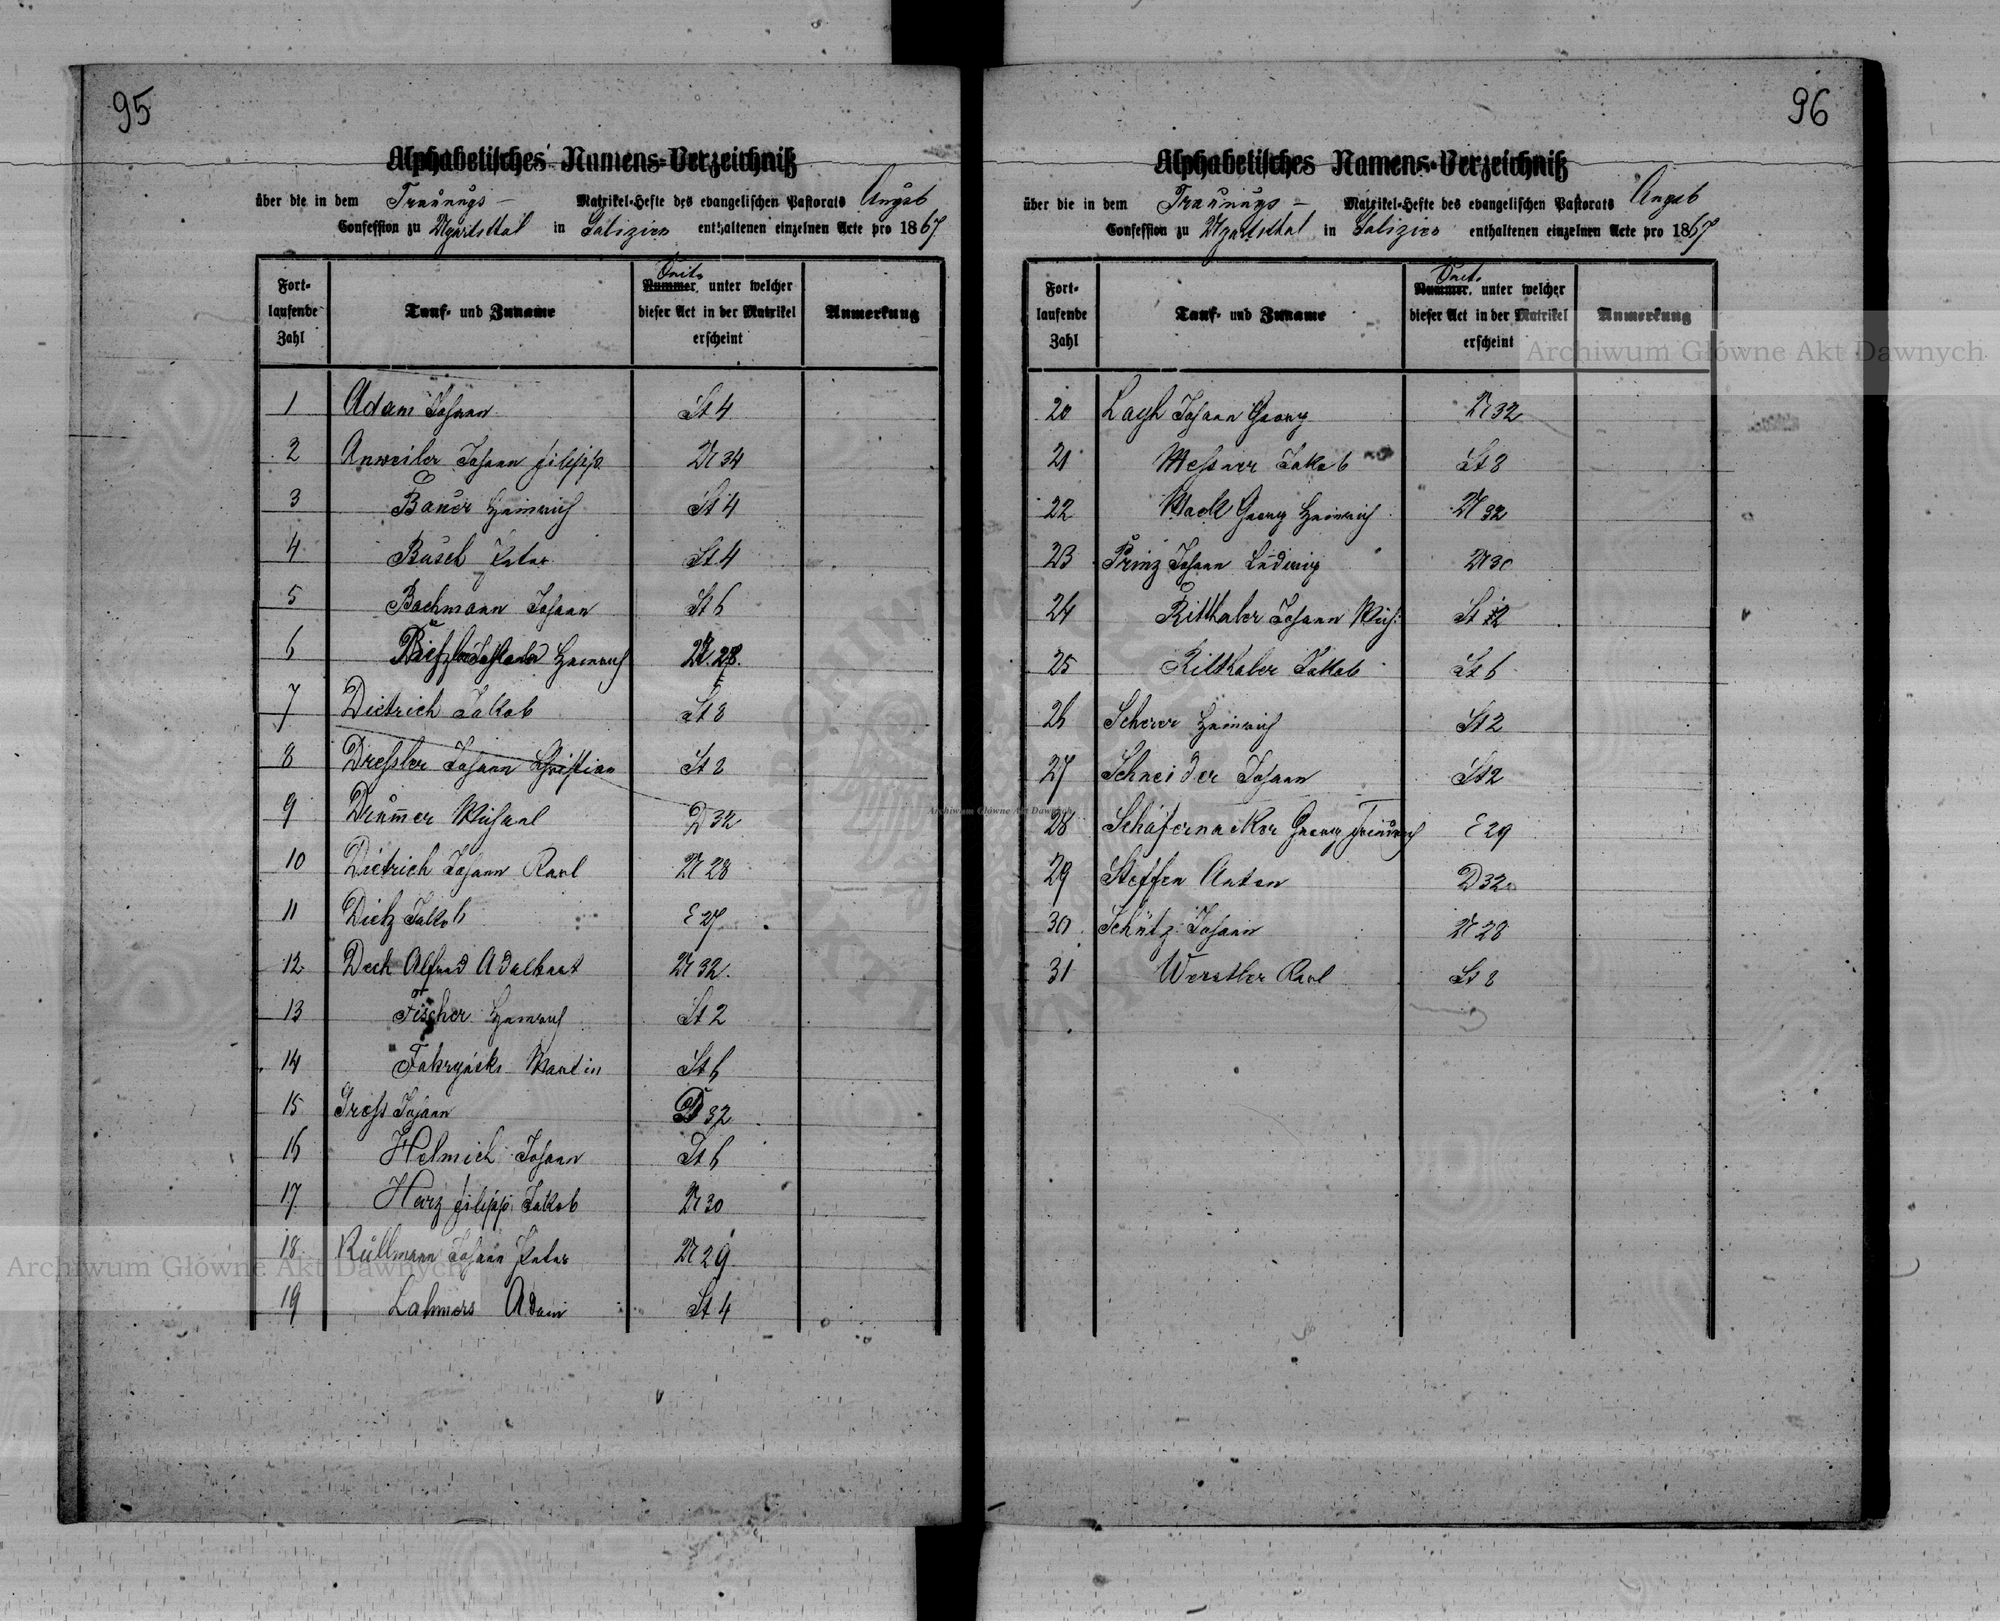 95
Alphabetisches Namens-Verzeichniß
über die in dem Trauungs- Matrikel-Hefte des evangelischen Pastorats Augsb
Confession zu Ugartsthal in Galizien enthaltenen einzelnen Acte pro 1867
Fort-laufende Zahl
Tauf- und Zuname
Seite
Nummer, unter welcher dieser Act in der Matrikel erscheint
Anmerkung
1 Adam Johann St 4
2 Anweiler Johann Filipp U 34
3 Bauer Heinrich St 4
4 Busch Peter St 4
5 Bachmann Johann St 6
6 Heinrich 28.
7 Dietrich Jakob St 8
8 Dressler Johann Christian St 2
9 Drummer Michael D 32
10 Dietrich Johann Karl U 28
11 Dietz Jakob E 27
12 Deck Alfred Adalbert U 32.
13 Fischer Heinrich St 2
14 Martin St 6
15 Gross Johann D 32
16 Helmich Johann St 6
17 Harz Filipp Jakob U 30
18 Kullmann Johann Peter U 29
19 Lahmers Adam St 4
96
Alphabetisches Namens-Verzeichniß
über die in dem Trauungs- Matrikel-Hefte des evangelischen Pastorats Augsb
Confession zu Ugartsthal in Galizien enthaltenen einzelnen Acte pro 1867
Fort-laufende Zahl
Tauf- und Zuname
Seite
Nummer, unter welcher dieser Act in der Matrikel erscheint
Anmerkung
20 Layh Johann Georg U 32
21 Messner Jakob St 8
22 Mack Georg Heinrich U 32
23 Prinz Johann Ludwig U 30
24 Ritthaler Johann Mich: St 2
25 Ritthaler Jakob St 6
26 Scherer Heinrich St 2
27 Schneider Johann St 2
28 Schäfernacker Georg E 29
29 Steffen Anton D 32
30 Schütz Johann U 28
31 Werstler Karl St 8
Archiwum Główne Akt Dawnych
Archiwum Główne Akt Dawnych
Archiwum Główne Akt Dawnych